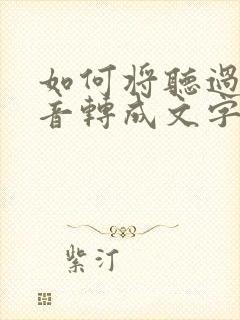 如何将聽過
音轉成文字
紫汀